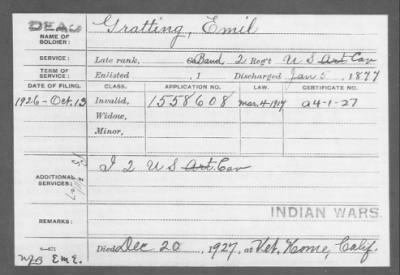 DEAD
NAME OF SOLDIER: Gratting, Emil
SERVICE: Late rank, Co Band, 2 Reg't U S Art Cav
TERM OF SERVICE: Enlisted , 1 Discharged Jan 5, 1877
DATE OF FILING. CLASS. APPLICATION NO. LAW. CERTIFICATE NO.
1926-Oct. 13 Invalid, 1558608 Mar. 4-1917 A4-1-27
Widow,
Minor,
ADDITIONAL SERVICES: I 2 U S Art Cav
INDIAN WARS.
REMARKS:
Died Dec 20, 1927, at Vet. Home, Calif.
E.M.E.